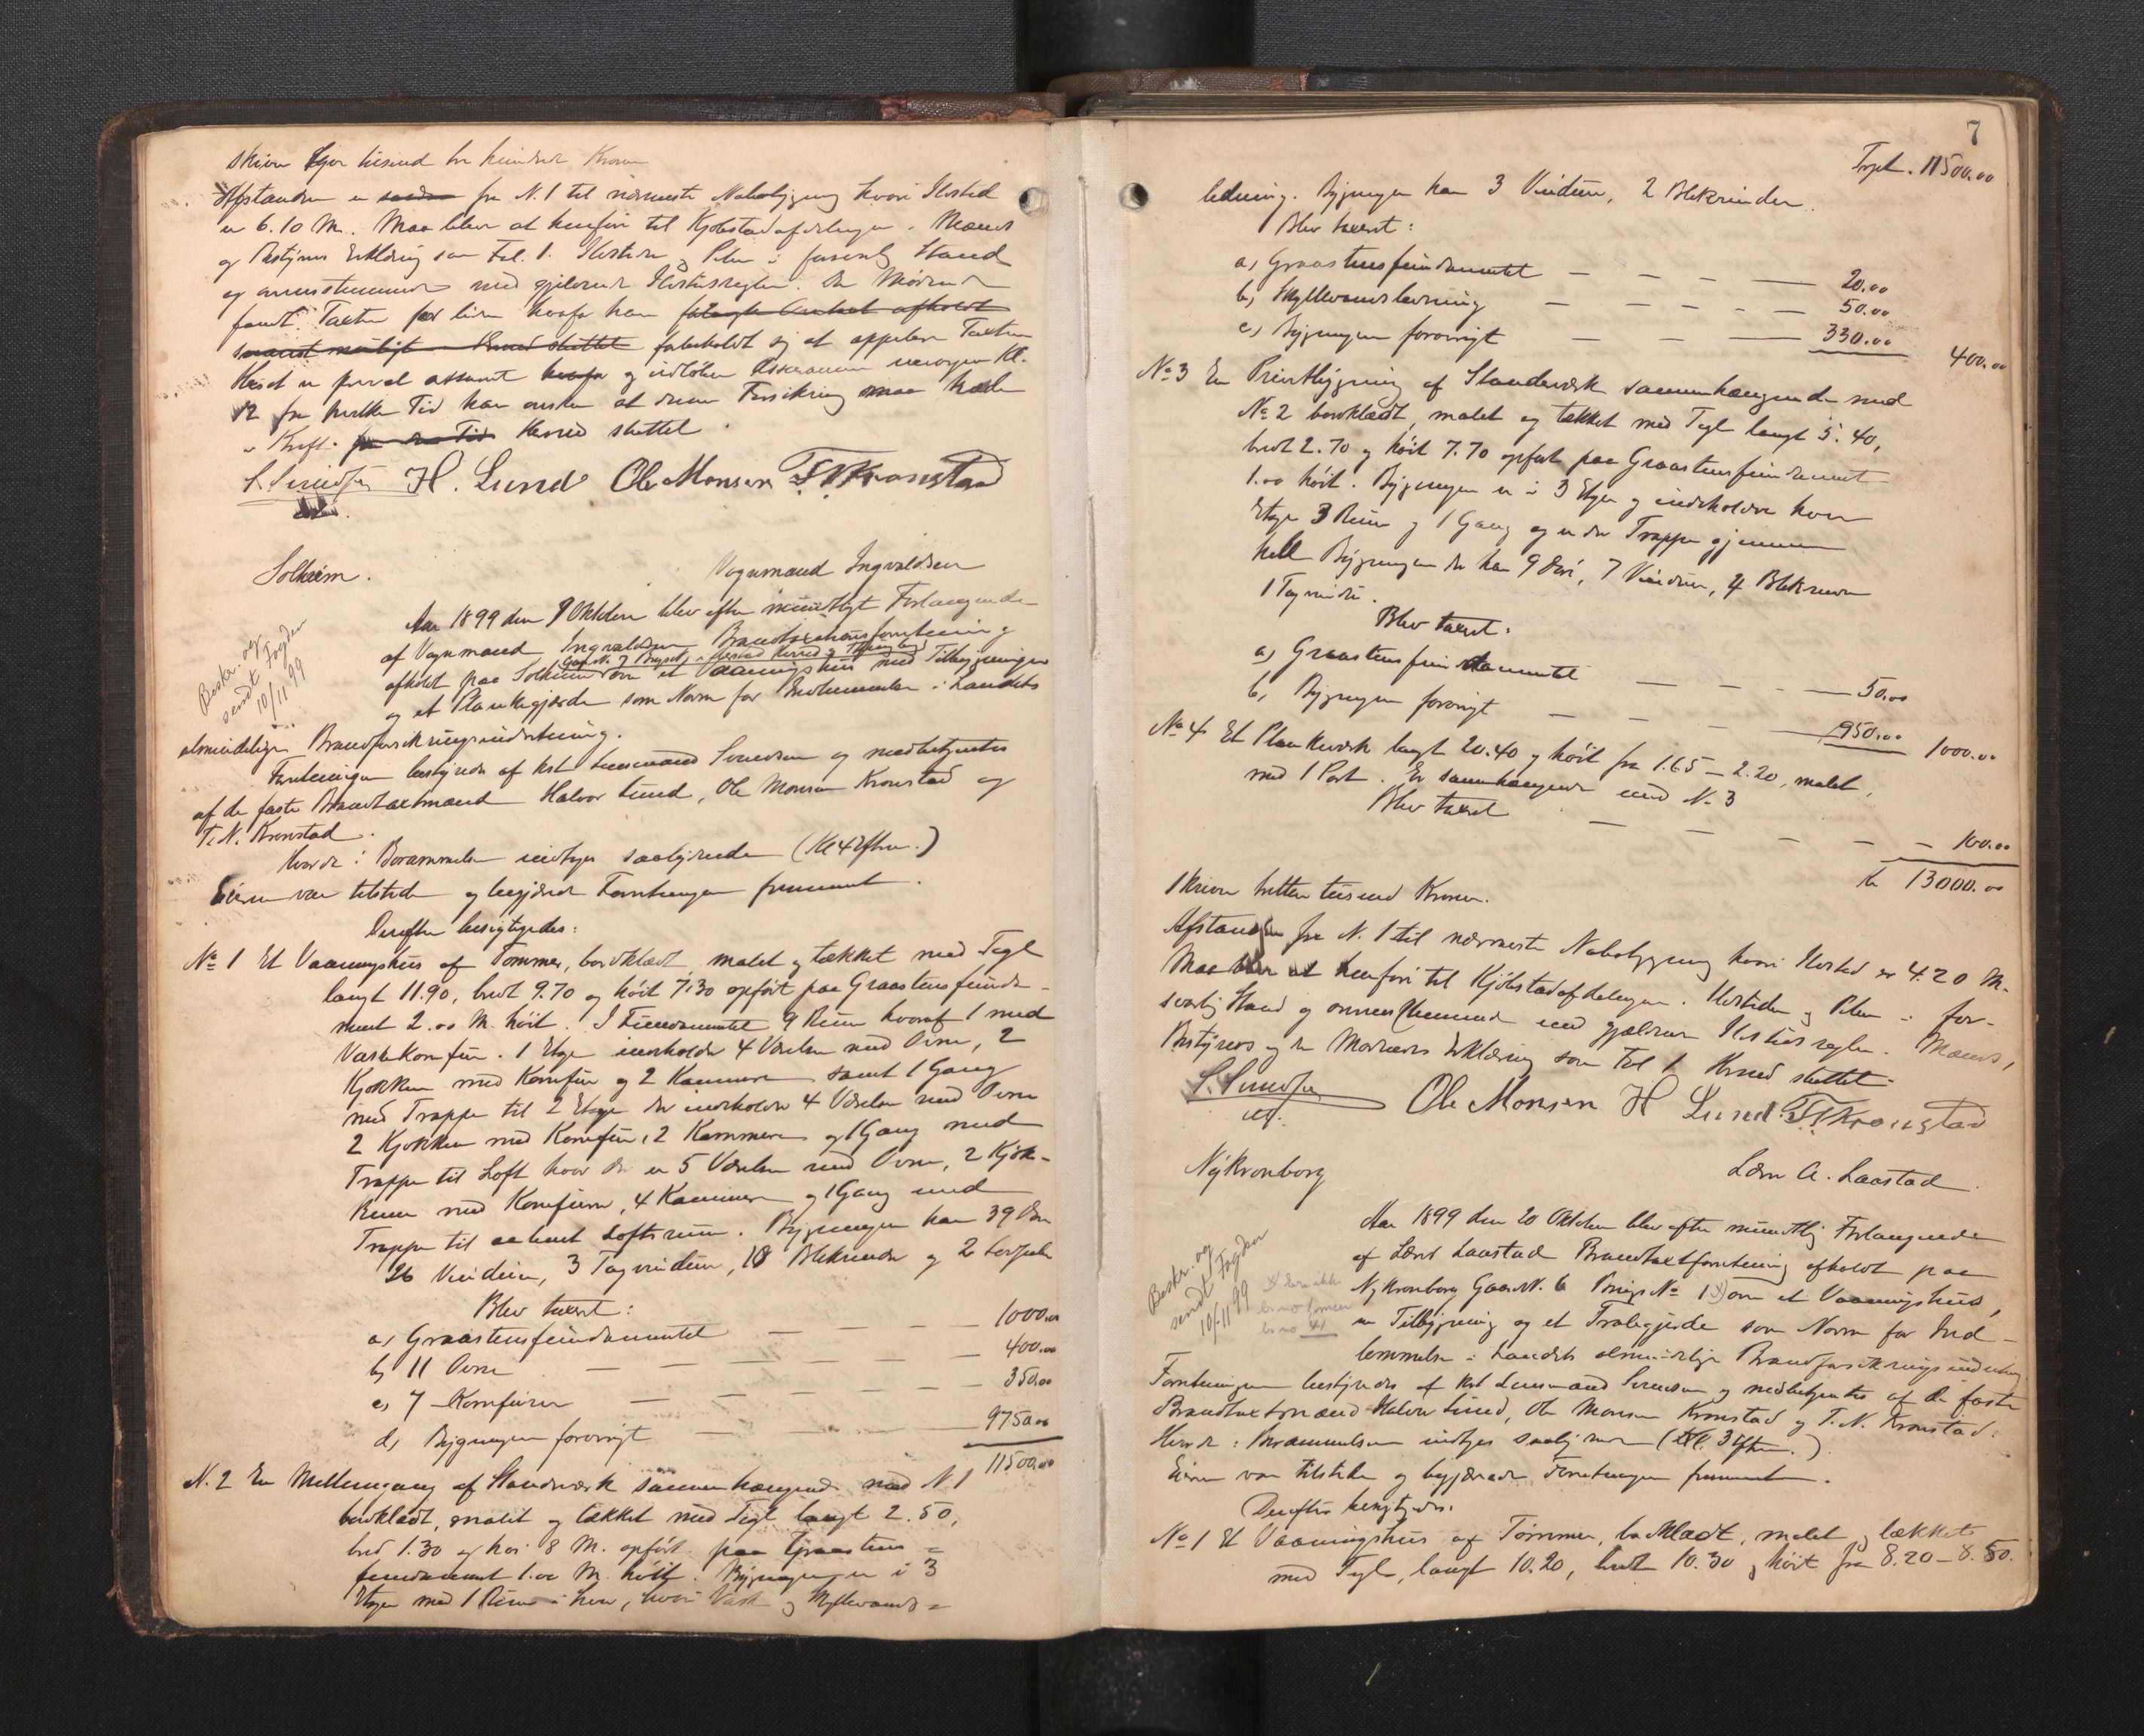 skriver fjor tusind tre hundrede Kroner
Afstanden er fra N. 1 til nærmeste Nabobygning hvori Ildsted
er 6.10 M. Maa blive at henføre til Kjøbstadafdelingen. Mænds
og Bestyrers Erklæring som Fol. 1. Ildsteder og Piber i forsvarlig Stand
og overensstemmende med gjældende Ildstedsregler. De Mødende
fandt Taxten for liden hvorfor han
forbeholdt sig at appellere Taxten
Huset er privat assureret og udløber Assurancen imorgen Kl.
12 fra hvilken Tid han ønsker at denne Forsikring maa træde
i Kraft. Hermed sluttet.
H. Lund Ole Monsen T. N. Kronstad
Solheim.
Vognmand Ingvaldsen
Beskr. og
sendt Fogden
10/11 99
Aar 1899 den 9 Oktober blev efter mundtligt Forlangende
af Vognmand Ingvaldsen Brandtaxationsforretning
afholdt paa Solheim over et Vaaningshus med Tilbygninger
og et Plankegjærde som Norm for Indlemmelse i Landets
almindelige Brandforsikringsindretning.
Forretningen bestyredes af kst Lensmand Svendsen og medbetjentes
af de faste Brandtaxtmænd Halvor Lund, Ole Monsen Kronstad og
T. N. Kronstad.
Hvorda: Berammelsen indtages saalydende (Kl 4 Eftm.)
Eieren var tilstede og begjærede Forretningen fremmet.
Derefter besigtigedes:
No 1 Et Vaaningshus af Tømmer, bordklædt, malet og tækket med Tegl
langt 11.90, bredt 9.70 og høit 7.30 opført paa Graastensfunda-
ment 2.00 M. høit. I Fundamentet 9 Rum hvoraf 1 med
Vaskekomfur. 1 Etage indeholder 4 Værelser med Ovne, 2
Kjøkken med Komfur og 2 Kammere samt 1 Gang
med Trappe til 2 Etage der indeholder 4 Værelser med Ovne
2 Kjøkken med Komfur, 2 Kammere og 1 Gang med
Trappe til Loft hvor der er 5 Værelser med Ovne, 2 Kjøk-
kener med Komfurer, 4 Kammere og 1 Gang med
Trappe til aabent Loftsrum. Bygningen har 39 Døre
26 Vinduer, 3 Tagvinduer, 18 Blikrender og 2
Blev taxeret:
a, Graastensfundamentet — — — — 1000.00
b, 11 Ovne — — — — — — 400.00
c, 7 Komfurer — — — — — 350.00
d, Bygningen forøvrigt — — — 9750.00
11500.00
N. 2 En Mellemgang af Standværk sammenhængende med N 1
bordklædt, malet og tækket med Tegl langt 2.50,
bred 1.30 og høi 8 M. opført paa Graastens =
fundament 1.00 M. høit. Bygningen er i 3
Etager med 1 Rum i hver, hvori Vask og Skyllevands =
7
Trspt. 11500.00
ledning. Bygningen har 3 Vinduer, 2 Blikrender.
Blev taxeret:
a, Graastensfundamentet — — — — 20.00
b, Skyllevandsledning — — — — 50.00
c, Bygningen forøvrigt — — — 330.00
400.00
No 3 En Privetbygning af Standværk sammenhængende med
No 2 bordklædt, malet og tækket med Tegl langt 5.40,
bredt 2.70 og høit 7.70 opført paa Graastensfundament
1.00 høit. Bygningen er i 3 Etager og indeholder hver
Etage 3 Rum og 1 Gang og er der Trappe gjennem
hele Bygningen der har 9 Døre, 7 Vinduer, 4 Blikrender
1 Tagvindu.
Blev taxeret:
a, Graastensfundamentet — — — 50.00
b, Bygningen forøvrigt — — — 950.00 1000.00
No 4 Et Plankeværk langt 20.40 og høit fra 1.65 – 2.20, malet,
med 1 Port. Er sammenhængende med N. 3
Blev taxeret — — — — — — 100.00
Kr 13000.00
Skriver tretten tusend Kroner.
Afstanden fra N. 1 til nærmeste Nabobygning hvori Ildsted er 4.20 M.
Maa blive at henføre til Kjøbstadafdelingen. Ildsteder og Piber i for-
svarlig Stand og overensstemmende med gjældende Ildstedsregler. Mænds,
Bestyrers og de Mødendes Erklæring som Fol 1. Hermed sluttet.
Ole Monsen H Lund. T. N. Kronstad
Ny Kronborg
Lærer A. Laastad.
Beskr. og
sendt Fogden
10/11 99
Aar 1899 den 20 Oktober blev efter mundtlig Forlangende
af Lærer Laastad Brandtaxtforretning afholdt paa
Ny Kronborg Gaards N. 6 Brugs No 1 over et Vaaningshus,
en Tilbygning og et Traliegjerde som Norm for Ind-
lemmelse i Landets almindelige Brandforsikringsindretning
Forretningen bestyredes af kst Lensmand Svendsen og medbetjentes af de faste
Brandtaxtmænd Halvor Lund, Ole Monsen Kronstad og T. N. Kronstad.
Hvorda: Berammelsen indtages saalydende (Kl. 3 Eftm.)
Eieren var tilstede og begjærede Forretningen fremmet.
Derefter besigtigedes:
No 1 Et Vaaningshus af Tømmer, bordklædt, malet og tækket
med Tegl, langt 10.20, bredt 10.30 og høit fra 8.20 – 8.50.